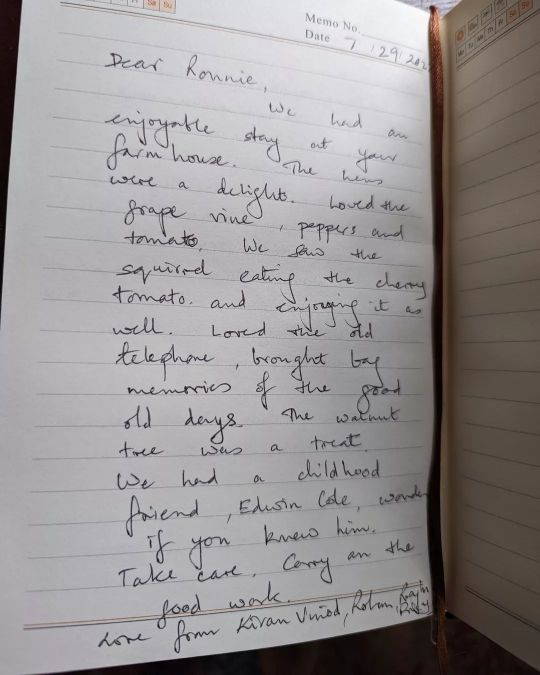 Sa Su
Memo No.
Date 7/29/202
Dear Ronnie,
We had an
enjoyable stay at your
farm house. The hens
were a delight. Loved the
grape vine, peppers and
tomato. We saw the
squirrel eating the cherry
tomato. and enjoying it as
well. Loved the old
telephone, brought bag
memories of the good
old days. The walnut
tree was a treat.
We had a childhood
friend, Edwin Cole, wonder
if you knew him.
Take care. Carry on the
good work.
Love from Kiran Vinod, Rohan,